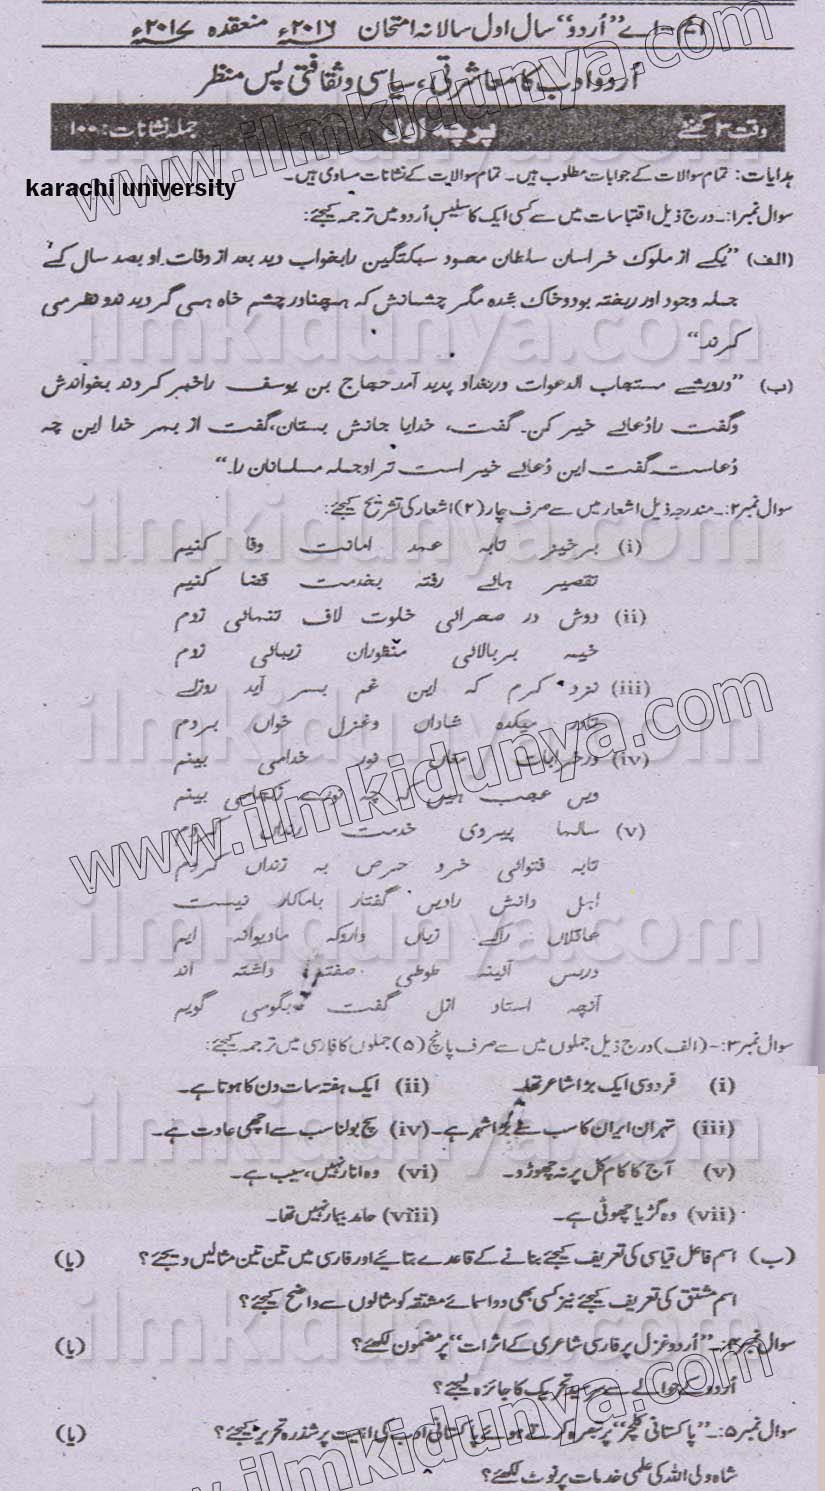 ایم۔اے "اُردو" سال اول سالانہ امتحان ۲۰۱۶ء منعقدہ ۲۰۱۷ء
اُردو ادب کا معاشرتی، سیاسی و ثقافتی پس منظر
وقت ۳ گھنٹے پرچہ اول جملہ نشانات: ۱۰۰
ہدایات: تمام سوالات کے جوابات مطلوب ہیں۔ تمام سوالات کے نشانات مساوی ہیں۔
karachi university
سوال نمبر۱:۔ درج ذیل اقتباسات میں سے کسی ایک کا سلیس اُردو میں ترجمہ کیجئے:
(الف) "یکے از ملوک خراسان سلطان محمود سبکتگین را بخواب دید بعد از وفات او بصد سال کے
جملہ وجود اور ریختہ بود و خاک شدہ مگر چشمانش کہ ہمچنادر چشم خاہ ہمی گردید ندو نظر می
کرند"
(ب) "درویشے مستجاب الدعوات در بغداد پدید آمد حجاج بن یوسف را خبر کردند بخواندش
وگفت رادُعائے خیر کن۔ گفت، خدایا جانش بستان، گفت از بہر خدا این چہ
دُعاست۔ گفت این دُعائے خیر است تراو جملہ مسلمانان را۔"
سوال نمبر۲:۔ مندرجہ ذیل اشعار میں سے صرف چار (۴) اشعار کی تشریح کیجئے:
(i) برخیز تابہ عہد امانت وفا کنیم
تقصیر ہائے رفتہ بخدمت قضا کنیم
(ii) دوش در صحرائی خلوت لاف تنہائی زدم
خیمہ بربالائی منظوران زیبائی زدم
(iii) نزد کرم کہ این غم بسر آید روزے
تادر میکدہ شاداں وغزل خواں بردم
(iv) درخرابات مغان نور خدامی بینم
ویں عجب بیں کہ چہ نورے زکجامی بینم
(v) سالہا پیروی خدمت رنداں کردم
تابہ فتوائی خرد حرص بہ زنداں کردم
اہل دانش رادیں گفتار باماکار نیست
عاقلاں راکے زیاں داروکہ مادیوانہ ایم
درپس آئینہ طوطی صفتم داشتہ اند
آنچہ استاد ازل گفت بگوسی گویم
سوال نمبر۳:۔ (الف) درج ذیل جملوں میں سے صرف پانچ (۵) جملوں کا فارسی میں ترجمہ کیجئے:
(i) فردوسی ایک بڑا شاعر تھا۔ (ii) ایک ہفتہ سات دن کا ہوتا ہے۔
(iii) تہران ایران کا سب سے بڑا شہر ہے۔ (iv) سچ بولنا سب سے اچھی عادت ہے۔
(v) آج کا کام کل پر نہ چھوڑو۔ (vi) وہ انار نہیں، سیب ہے۔
(vii) وہ گڑیا چھوٹی ہے۔ (viii) حامد بیمار نہیں تھا۔
(ب) اسم فاعل قیاسی کی تعریف کیجئے بنانے کے قاعدے بتائیے اور فارسی میں تین تین مثالیں دیجئے؟ (یا)
اسم مشتق کی تعریف کیجئے نیز کسی بھی دو اسمائے مشتقہ کو مثالوں سے واضح کیجئے؟
سوال نمبر۴:۔ "اُردو غزل پر فارسی شاعری کے اثرات" پر مضمون لکھئے؟ (یا)
اُردو کے حوالے سے سرسید تحریک کا جائزہ لیجئے؟
سوال نمبر۵:۔ "پاکستانی کلچر" پر تبصرہ کرتے ہوئے پاکستانی ادب کی اہمیت پر شذرہ تحریر کیجئے؟ (یا)
شاہ ولی اللہ کی علمی خدمات پر نوٹ لکھئے؟
www.ilmkidunya.com
www.ilmkidunya.com
www.ilmkidunya.com
ilmkidunya.com
ilmkidunya.com
ilmkidunya.com
ilmkidunya.com
ilmkidunya.com
ilmkidunya.com
ilmkidunya.com